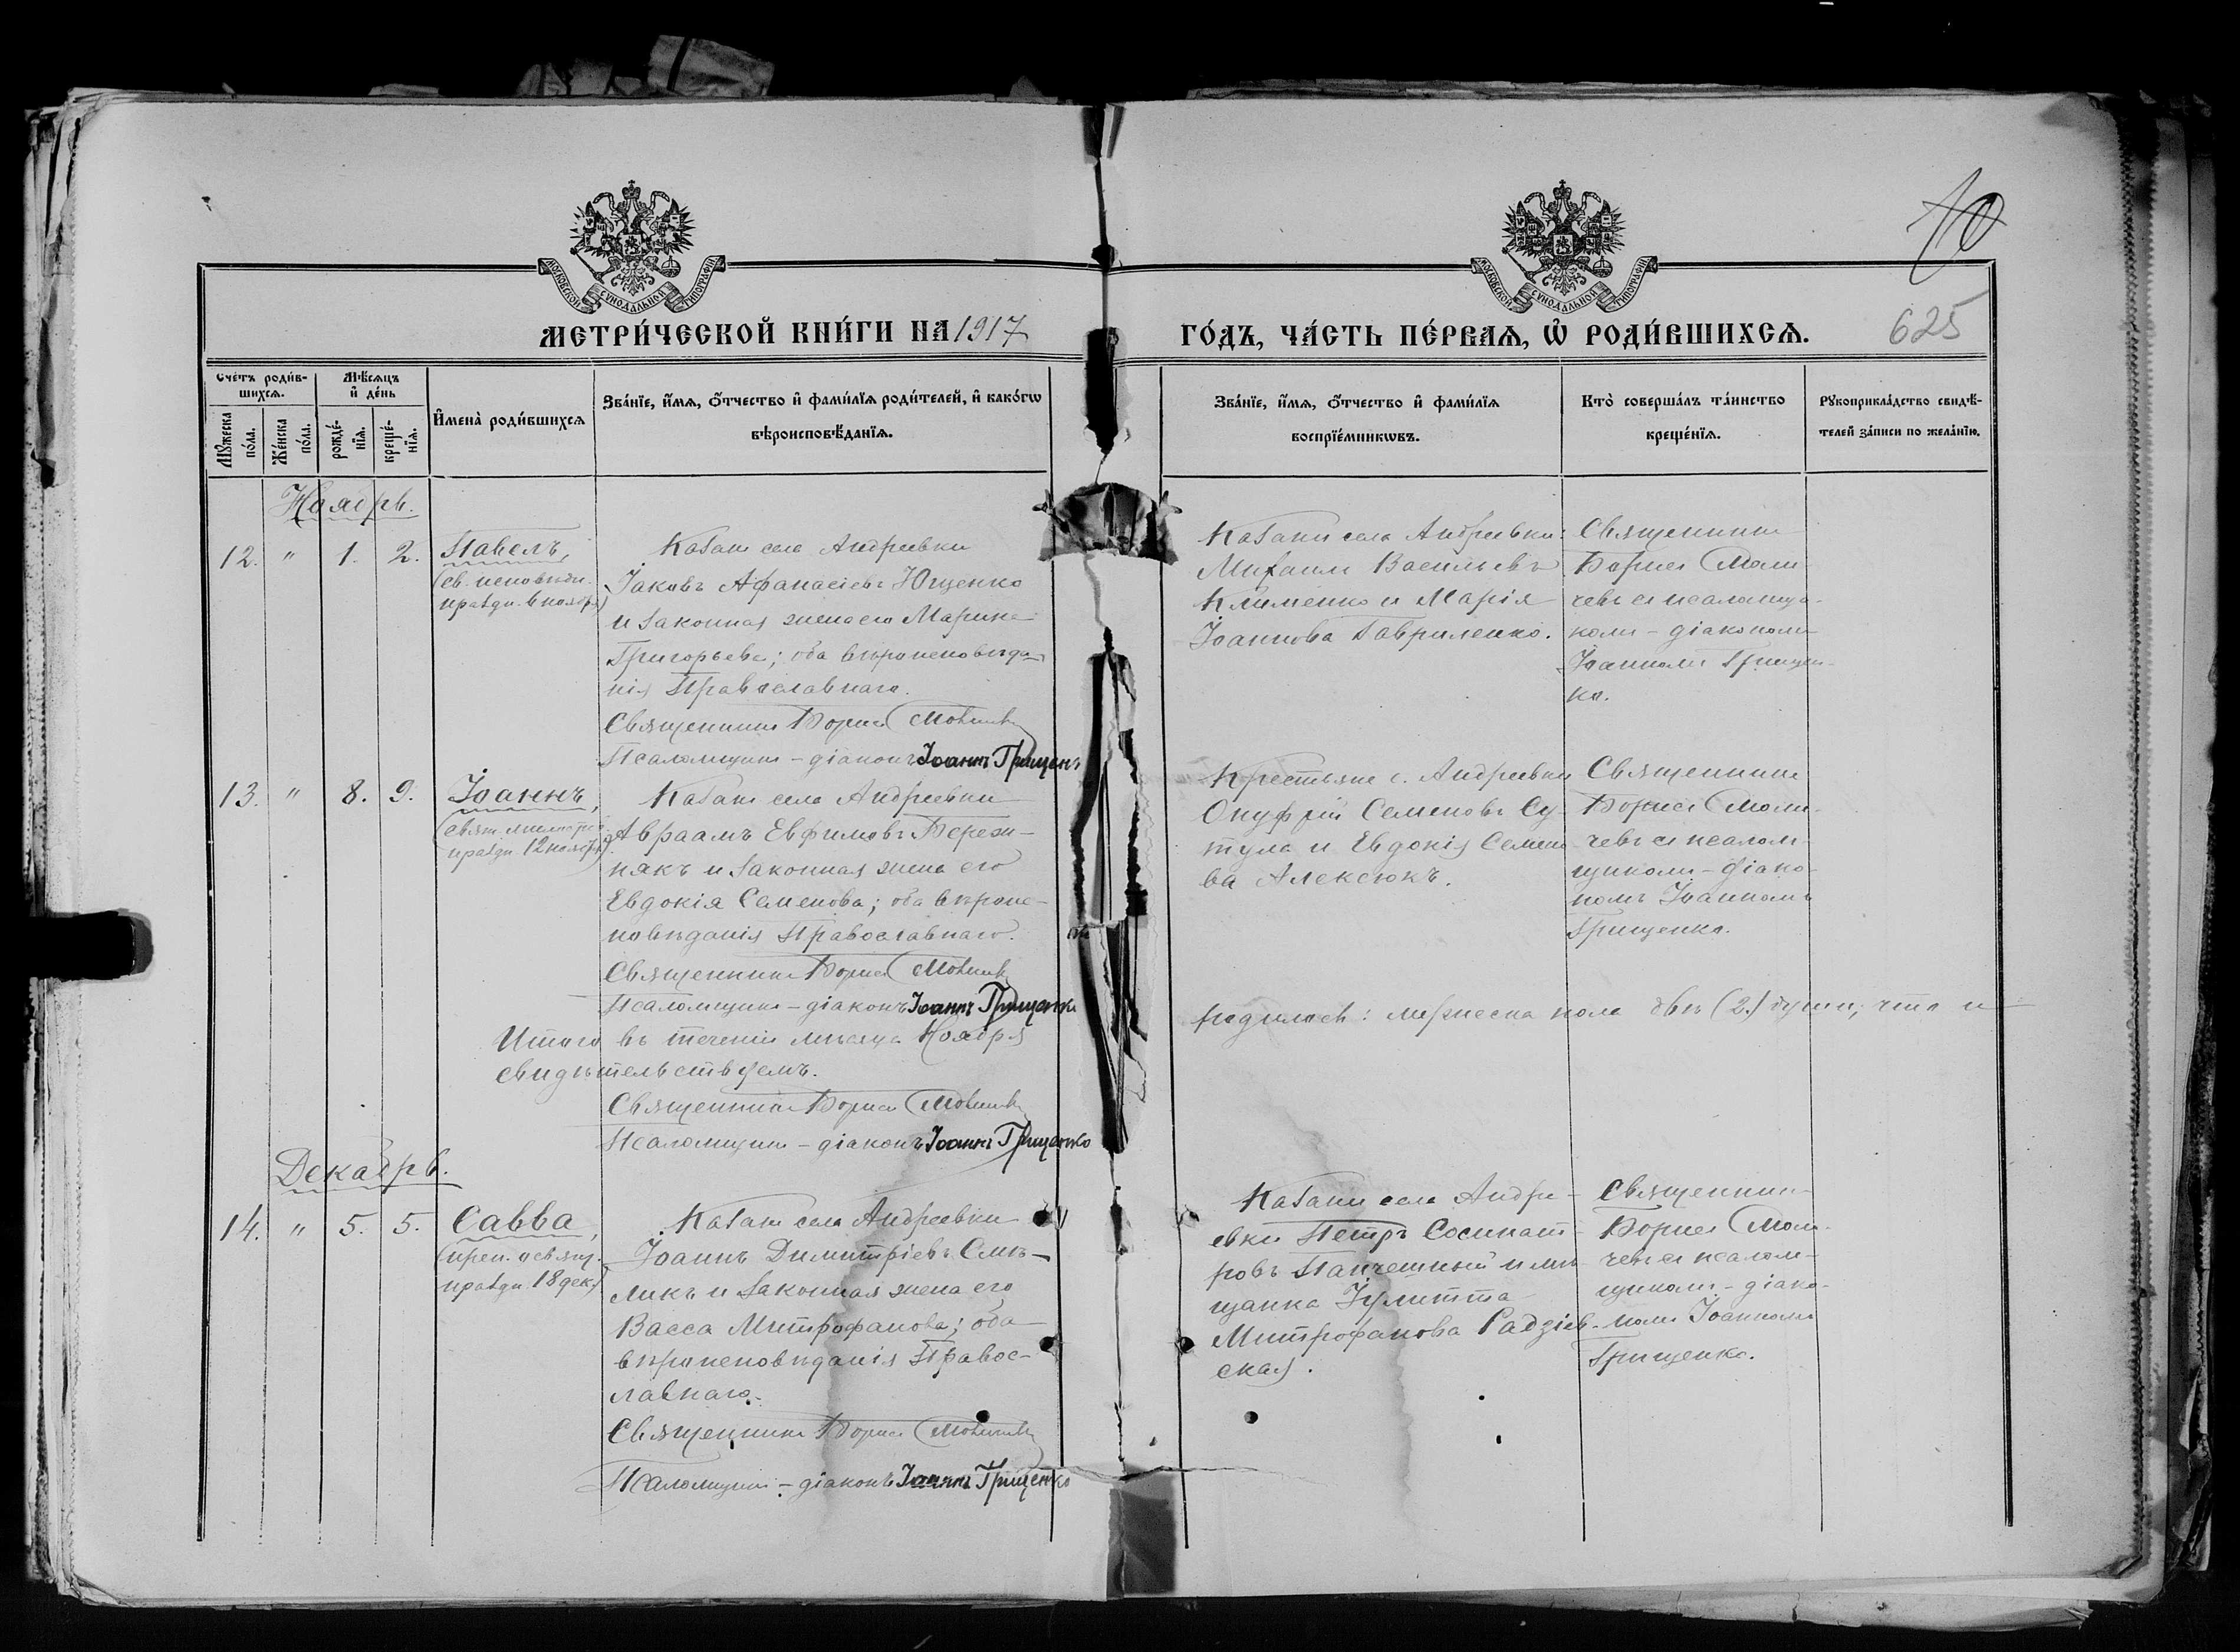 10
МОСКОВСКОЙ СУНОДАЛЬНОЙ ТИПОГРАФІИ
МОСКОВСКОЙ СУНОДАЛЬНОЙ ТИПОГРАФІИ
МЕТРИ́ЧЕСКОЙ КНИ́ГИ НА 1917
ГО́ДЪ, ЧА́СТЬ ПЕ́РВАѦ, Ѡ҆ РОДИ́ВШИХСѦ.
625
Сче́тъ роди́в-
шихсѧ.
Мꙋ́жеска по́ла.
Же́нска по́ла.
Мѣ́сѧцъ и҆ де́нь
рожде́-нїѧ.
креще́-нїѧ.
И҆мена̀ роди́вшихсѧ
Зва́нїе, и҆́мѧ, ѻ҆́тчество и҆ фами́лїѧ роди́телей, и҆ како́гѡ
вѣроисповѣ́данїѧ.
Зва́нїе, и҆́мѧ, ѻ҆́тчество и҆ фами́лїѧ
воспрїе́мникѡвъ.
Кто̀ соверша́лъ та́инство
креще́нїѧ.
Рꙋкоприкла́дство свидѣ́-
телей за́писи по жела́нїю.
Ноябрь.
12. " 1. 2. Павелъ,
(св. исповѣдн.
праздн. 6 ноября)
Казакъ села Андреевки
Іаковъ Афанасіевъ Ющенко
и законная жена его Марина
Григорьева; оба вѣроисповѣда-
нія Православнаго.
Священникъ Борисъ
Псаломщикъ-діаконъ Іоаннъ Грищенко
Казаки села Андреевки:
Михаилъ Васильевъ
Клименко и Марія
Іоаннова Гавриленко.
Священникъ
Борисъ
съ псаломщи-
комъ-діакономъ
Іоанномъ Грищен-
ко.
13. " 8. 9. Іоаннъ,
(свят. милостив.
праздн. 12 ноября)
Казакъ села Андреевки
Авраамъ Евфимовъ Береж-
някъ и законная жена его
Евдокія Семенова; оба вѣроис-
повѣданія Православнаго.
Священникъ Борисъ
Псаломщикъ-діаконъ Іоаннъ Грищенко
Крестьяне с. Андреевки
Онуфрій Семеновъ Су-
тула и Евдокія Семено-
ва Алексюкъ.
Священникъ
Борисъ
съ псалом-
щикомъ-діако-
номъ Іоанномъ
Грищенко.
Итого въ теченіи мѣсяца Ноября родилось: мужеска пола двѣ (2) души, что и
свидѣтельствуемъ.
Священникъ Борисъ
Псаломщикъ-діаконъ Іоаннъ Грищенко
Декабрь.
14. " 5. 5. Савва,
(преп. освящ.
праздн. 18 дек.)
Казакъ села Андреевки
Іоаннъ Димитріевъ Смѣ-
ликъ и законная жена его
Васса Митрофанова; оба
вѣроисповѣданія Правос-
лавнаго.
Священникъ Борисъ
Псаломщикъ-діаконъ Іоаннъ Грищенко
Казаки села Андре-
евки Петръ Сосипат-
ровъ Папчешный и мѣ-
щанка Іулитта
Митрофанова Радзіев-
ская.
Священникъ
Борисъ
съ псалом-
щикомъ-діако-
номъ Іоанномъ
Грищенко.